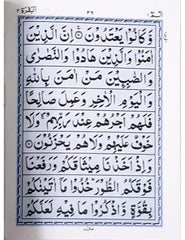 البقرة ٢ ٢٢ الٓمّٓ ١
وَّكَانُوْا يَعْتَدُوْنَ۝ اِنَّ الَّذِيْنَ
اٰمَنُوْا وَالَّذِيْنَ هَادُوْا وَالنَّصٰرٰى
وَالصّٰبِـِٕيْنَ مَنْ اٰمَنَ بِاللّٰهِ
وَالْيَوْمِ الْاٰخِرِ وَعَمِلَ صَالِحًا
فَلَهُمْ اَجْرُهُمْ عِنْدَ رَبِّهِمْ وَلَا
خَوْفٌ عَلَيْهِمْ وَلَا هُمْ يَحْزَنُوْنَ۝
وَاِذْ اَخَذْنَا مِيْثَاقَكُمْ وَرَفَعْنَا
فَوْقَكُمُ الطُّوْرَ خُذُوْا مَآ اٰتَيْنٰكُمْ
بِقُوَّةٍ وَّاذْكُرُوْا مَا فِيْهِ لَعَلَّكُمْ